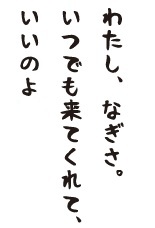 わたし、なぎさ。
いつでも来てくれて、
いいのよ